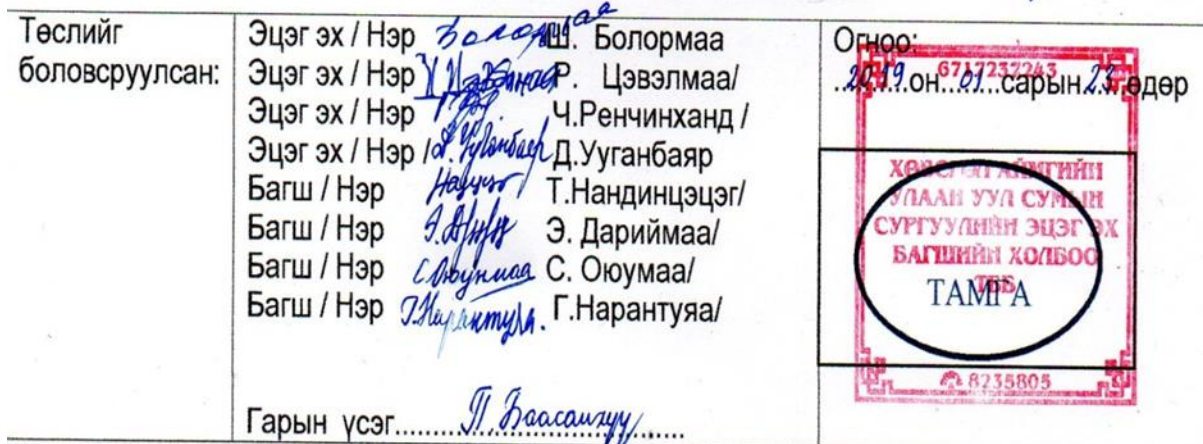 Төслийг боловсруулсан:
Эцэг эх / Нэр Болормаа Ш. Болормаа
Эцэг эх / Нэр Р. Цэвэлмаа/
Эцэг эх / Нэр Ч.Ренчинханд /
Эцэг эх / Нэр / Д.Ууганбаяр
Багш / Нэр Т.Нандинцэцэг/
Багш / Нэр Э. Дариймаа/
Багш / Нэр С. Оюумаа/
Багш / Нэр Г.Нарантуяа Г.Нарантуяа/
Гарын үсэг.......П. Баасанхүү......
Огноо:
..2019..он..01....сарын.23.өдөр
6717237243
ХӨВСГӨЛ АЙМГИЙН
УЛААН УУЛ СУМЫН
СУРГУУЛИЙН ЭЦЭГ ЭХ
БАГШИЙН ХОЛБОО
ТББ
ТАМГА
8235805